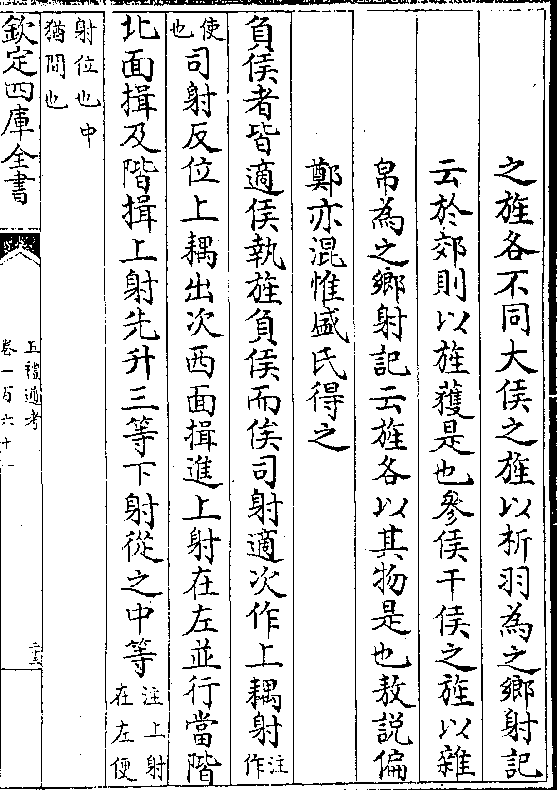 之旌各不同大侯之旌以析羽為之鄉射記
云於郊則以旌獲是也參侯干侯之旌以雜
帛為之鄉射記云旌各以其物是也敖説偏
鄭亦混惟盛氏得之
負侯者皆適侯執旌負侯而俟司射適次作上耦射注作
使也司射反位上耦出次西面揖進上射在左並行當階
北面揖及階揖上射先升三等下射從之中等注上射在左便
射位也中猶間也
欽定四庫全書
五禮通考
卷一百六十一